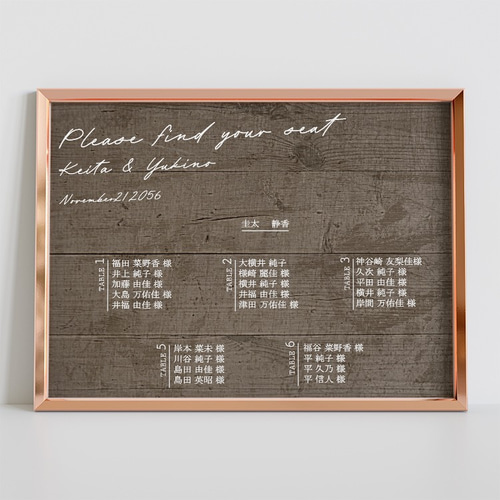 Please find your seat
Keita & Yukino
November 21 2056
圭太 静香
TABLE 1
福田 菜野香 様
井上 純子 様
加藤 由佳 様
大島 万佑佳 様
井福 由佳 様
TABLE 2
大横井 純子
様崎 麗佳 様
横井 純子 様
井福 由佳 様
津田 万佑佳 様
TABLE 3
神谷崎 友梨佳様
久次 純子 様
平田 由佳 様
横井 由佳 様
岸間 万佑佳 様
TABLE 5
岸本 菜未 様
川谷 純子 様
島田 由佳 様
島田 英昭 様
TABLE 6
福谷 菜野香 様
平 純子 様
平 久乃 様
平 信人 様